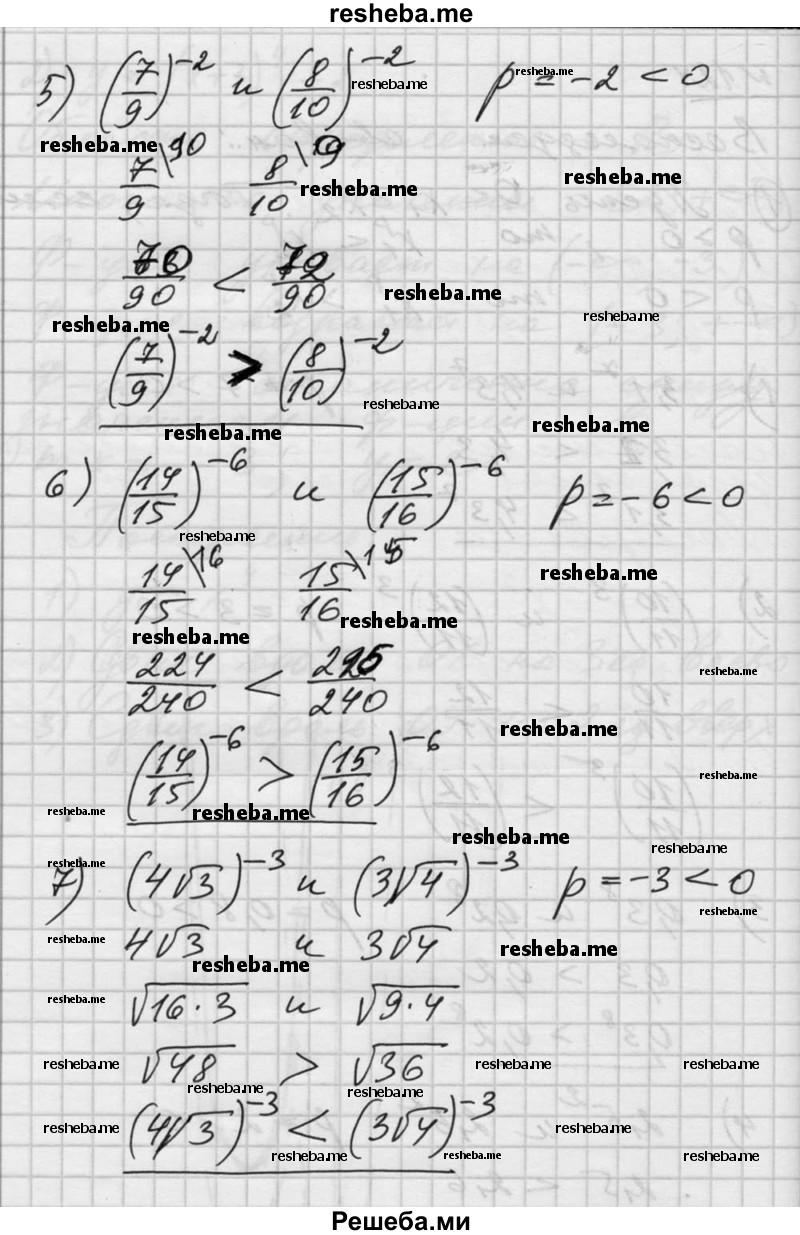 resheba.me
5) (7/9)^-2 и (8/10)^-2 p = -2 < 0
resheba.me
resheba.me
resheba.me
7/9 \10 8/10 \9
resheba.me
resheba.me
70/90 < 72/90
resheba.me
resheba.me
resheba.me
(7/9)^-2 > (8/10)^-2
resheba.me
resheba.me
resheba.me
6) (14/15)^-6 и (15/16)^-6 p = -6 < 0
resheba.me
14/15 \16 15/16 \15
resheba.me
resheba.me
resheba.me
224/240 < 225/240
resheba.me
resheba.me
(14/15)^-6 > (15/16)^-6
resheba.me
resheba.me
resheba.me
resheba.me
resheba.me
resheba.me
7) (4√3)^-3 и (3√4)^-3 p = -3 < 0
resheba.me
4√3 и 3√4
resheba.me
resheba.me
resheba.me
√16·3 и √9·4
resheba.me
√48 > √36
resheba.me
resheba.me
resheba.me
resheba.me
resheba.me
(4√3)^-3 < (3√4)^-3
resheba.me
resheba.me
resheba.me
resheba.me
resheba.me
Решеба.ми